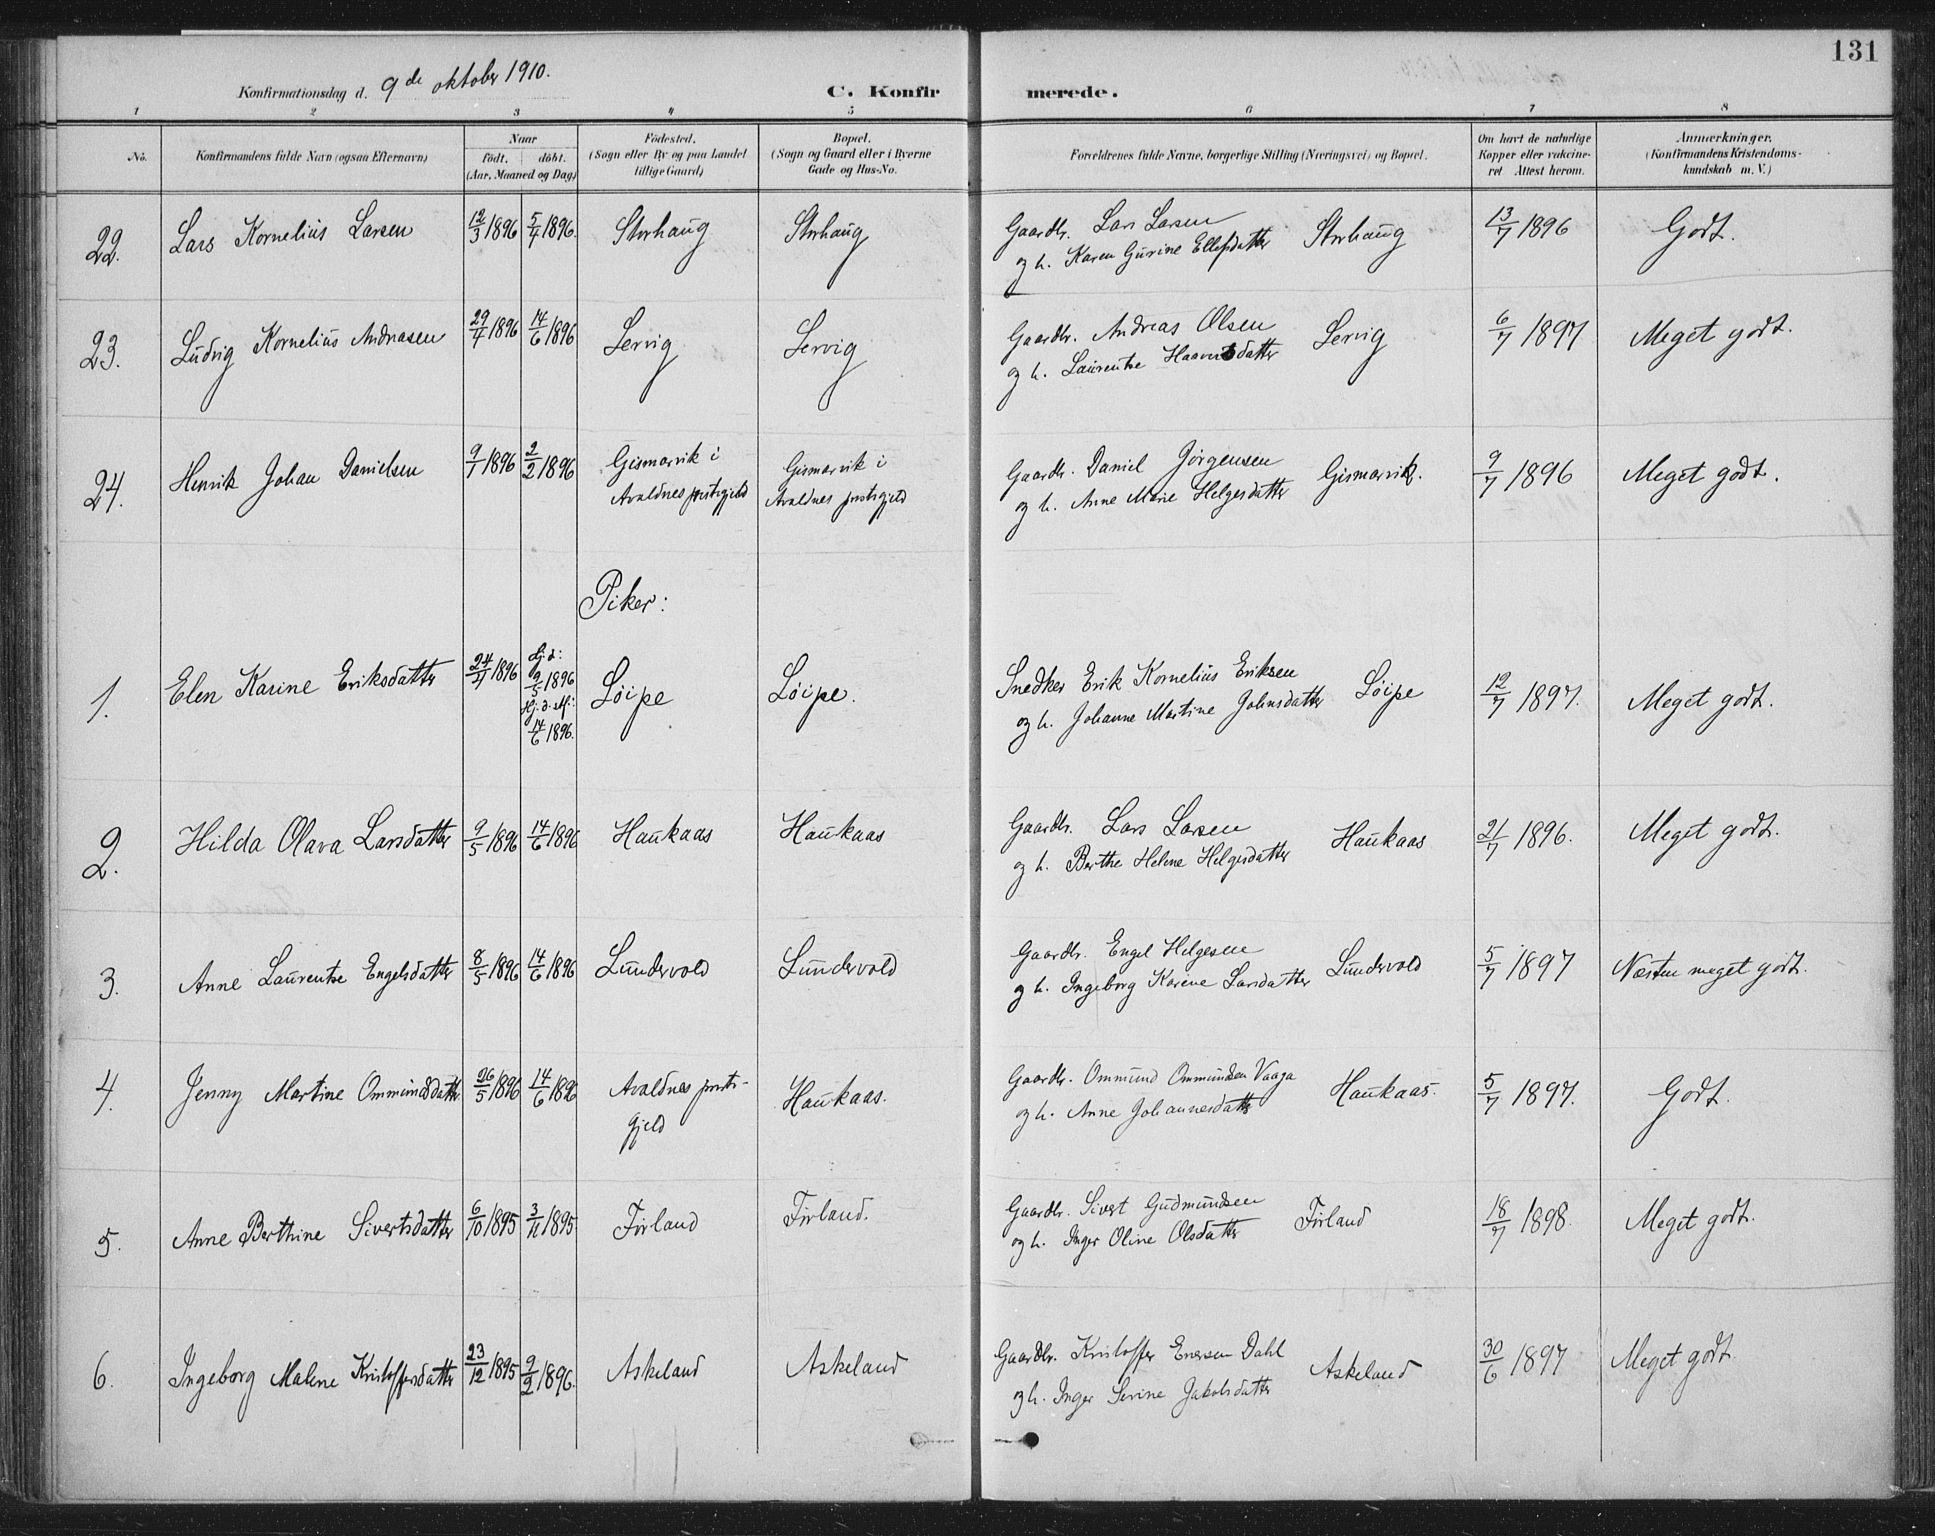 131
Konfirmationsdag d. 9de oktober 1910.
C. Konfirmerede.
1 2 3 4 5 6 7 8
No. | Konfirmandens fulde Navn (ogsaa Efternavn) | Naar født. døbt. (Aar, Maaned og Dag) | Fødested. (Sogn eller By og paa Landet tillige Gaard) | Bopæl. (Sogn og Gaard eller i Byerne Gade og Hus-No. | Forældrenes fulde Navne, borgerlige Stilling (Næringsvei) og Bopæl. | Om havt de naturlige Kopper eller vaccineret Attest herom. | Anmærkninger. (Konfirmandens Kristendomskundskab m. V.)
22. Lars Kornelius Larsen 12/3 1896 5/4 1896. Storhaug Storhaug Gaardbr. Lars Larsen Storhaug 13/7 1896 Godt.
og h. Karen Gurine Ellefsdatter
23. Ludvig Kornelius Andreasen 29/4 1896 14/6 1896 Servig Servig Gaardbr. Andreas Olsen Servig 6/7 1897 Meget godt.
og h. Laurentse datter
24. Henrik Johan Danielsen 9/1 1896 2/2 1896 Gismarvik i Gismarvik i Gaardbr. Daniel Jørgensen Gismarvik. 9/7 1896 Meget godt.
Avaldnes prestegjeld Avaldnes prestegjeld og h. Anne Marie Helgesdatter
Piker:
1. Elen Karine Eriksdatter 24/4 1896 Hj. d: 9/5 1896 Hj. d. st.: 14/6 1896. Løipe Løipe. Snedker Erik Kornelius Eriksen Løipe 12/7 1897. Meget godt.
og h. Johanne Martine Johnsdatter
2. Hilda Olava Larsdatter 9/5 1896 14/6 1896 Haukaas Haukaas Gaardbr. Lars Larsen Haukaas 21/7 1896. Meget godt.
og h. Berthe Helene Helgesdatter
3. Anne Laurentse Engelsdatter 8/5 1896 14/6 1896 Lundervold Lundervold Gaardbr. Engel Helgesen Lundervold 5/7 1897 Næsten meget godt.
og h. Ingeborg Karine Larsdatter
4. Jenny Martine Ommundsdatter 26/5 1896 14/6 1896 Avaldnes prestegjeld Haukaas. Gaardbr. Ommund Ommundsen Vaaga Haukaas. 5/7 1897. Godt.
og h. Anne Johannesdatter
5. Anne Berthine Sivertsdatter 6/10 1895 3/11 1895 Førland Førland. Gaardbr. Sivert Gudmundsen Førland 18/7 1898. Meget godt.
og h. Inger Oline Olsdatter
6. Ingeborg Malene Kristoffersdatter 23/12 1895 9/2 1896. Askeland Askeland Gaardbr. Kristoffer Enersen Dahl Askeland 30/6 1897 Meget godt.
og h. Inger Serine Jakobsdatter